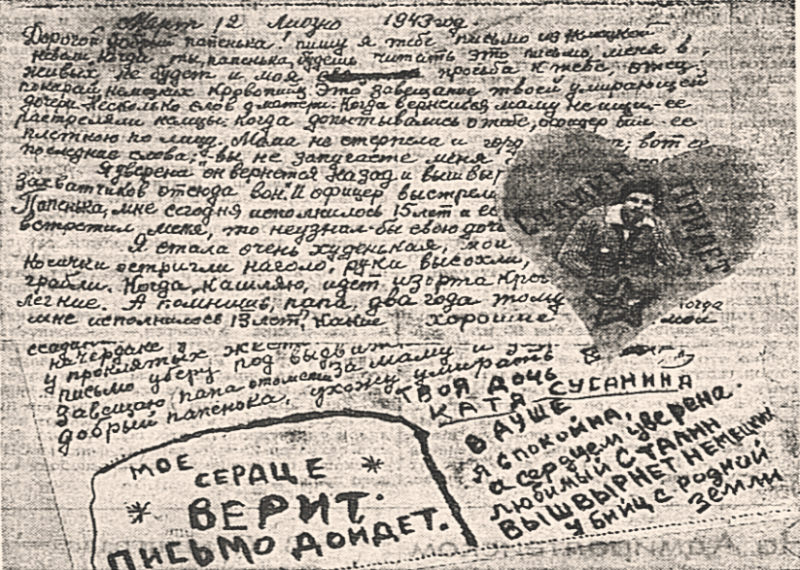 Март 12 Лиозно 1943 год.
Дорогой добрый папенька! пишу я тебе письмо из немецкой
неволи, когда ты, папенька, будешь читать это письмо, меня в
живых не будет и моя просьба к тебе, отец:
покарай немецких кровопийц. Это завещание твоей умирающей
дочери. Несколько слов о матери. Когда вернешься маму не ищи. ее
растреляли немцы. когда допытывались о тебе, офицер бил ее
плеткою по лицу. Мама не стерпела и горд вот ее
последние слова; "вы не запугаете меня
Я уверена он вернется назад и вышвыр
захватчиков отсюда вон." И офицер выстрел
Папенька, мне сегодня исполнилось 15 лет и ес
встретил меня, то неузнал-бы свою доч
Я стала очень худенькая, мои
косички остригли наголо, руки высохли,
грабли. Когда кашляю, идет изорта кров
легкие. А помнишь, папа, два года тому когда
мне исполнилось 13 лет, какие хорошие мои
на чердаке
у проклятых жест
письмо уберу под выдвит
Завещаю папа отомсти за маму и
добрый папенька, ухожу умирать
твоя дочь
КАТЯ СУСАНИНА
В ДУШЕ
я спокойна,
а сердцем уверена.
любимый СТАЛИН
ВЫШВЫРНЕТ НЕМЕЦКИХ
УБИЙЦ с родной
земли
СТАЛИН ПРИДЕТ
МОЕ
СЕРДЦЕ
ВЕРИТ.
ПИСЬМО ДОЙДЕТ.